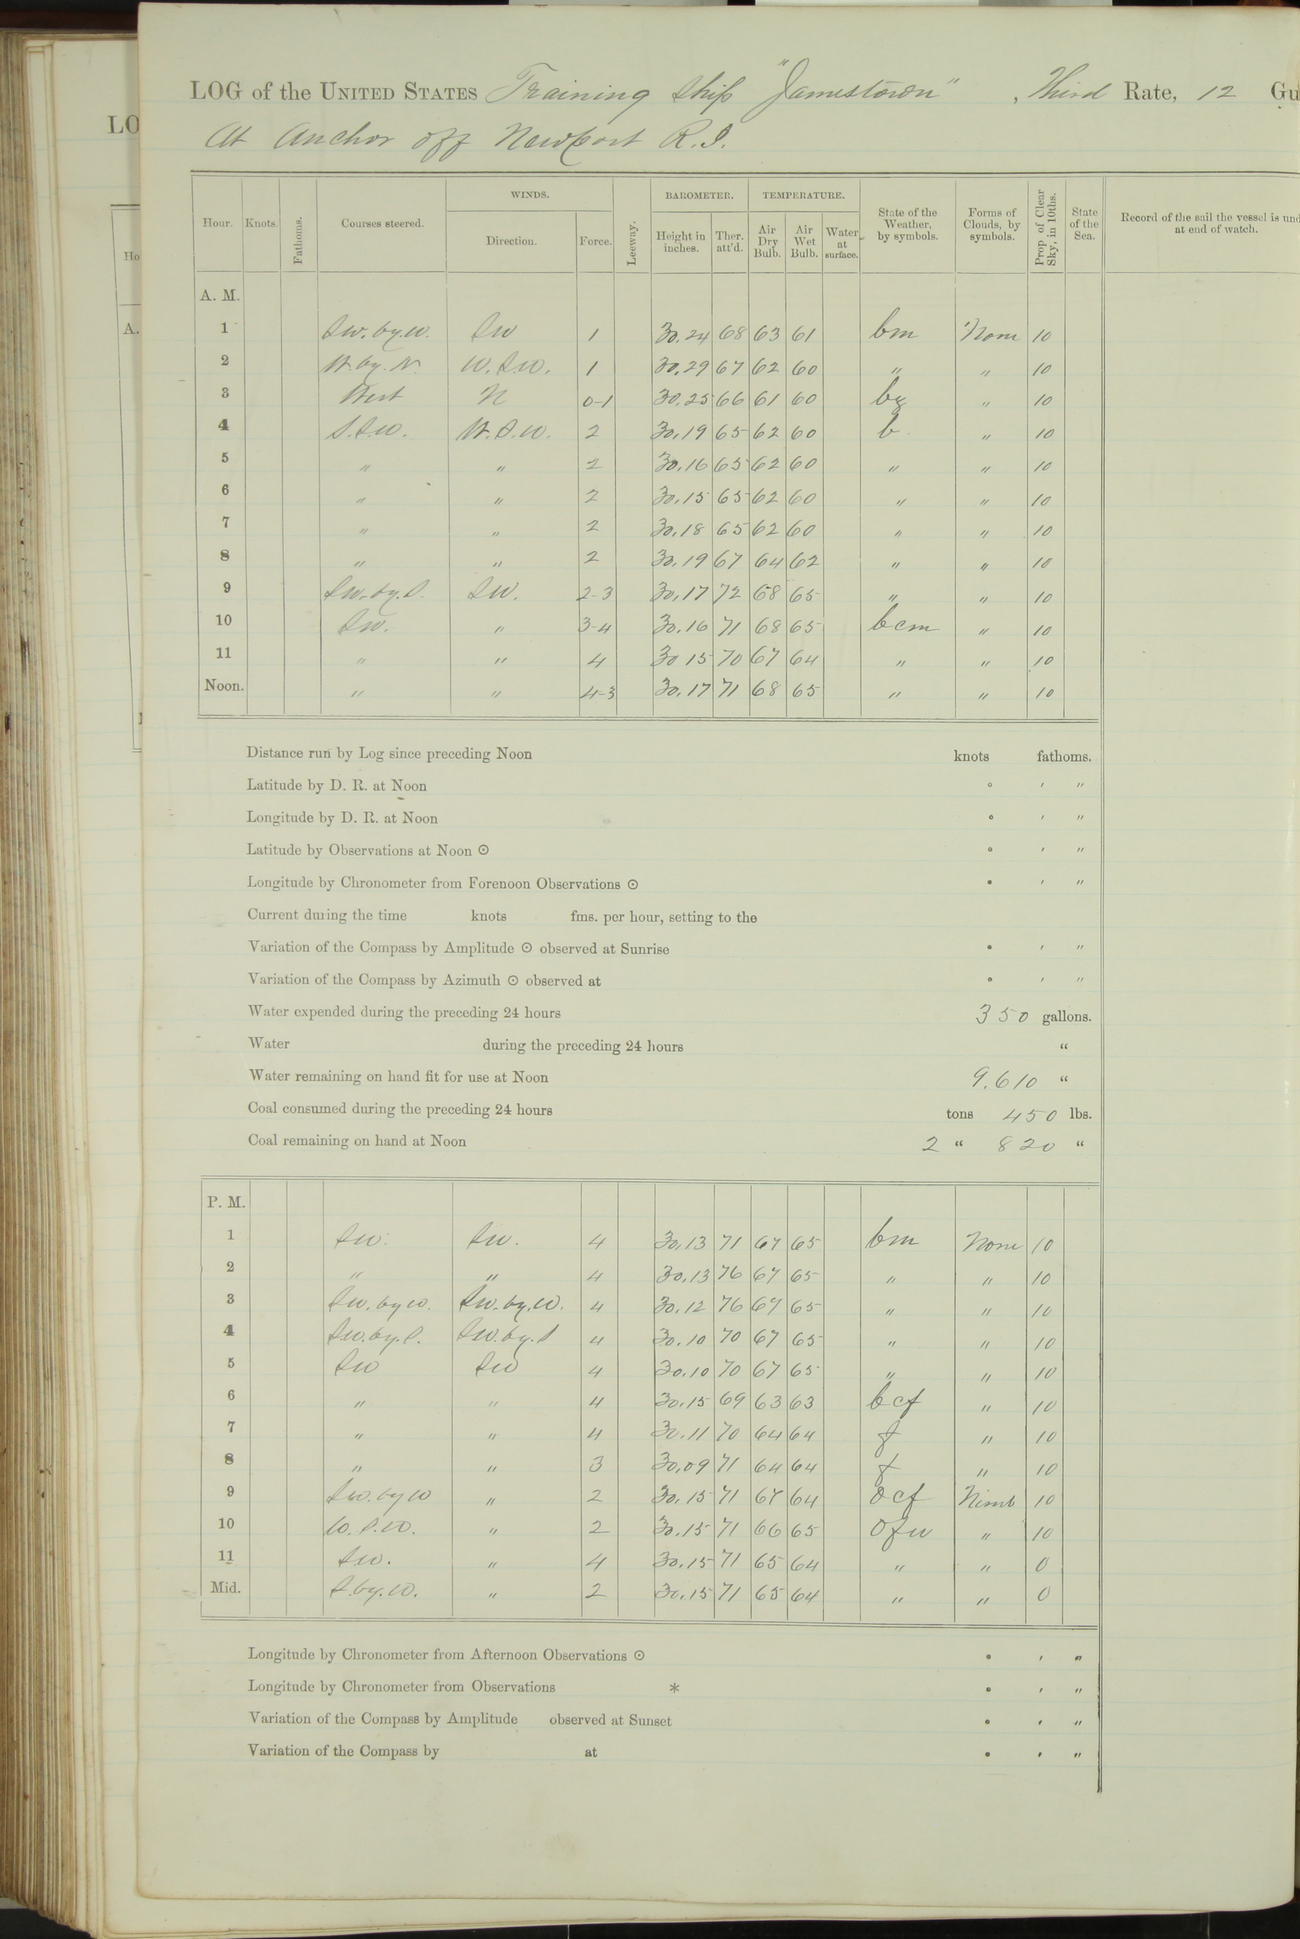 LOG of the UNITED STATES Training Ship "Jamestown", Third Rate, 12 Gu
At Anchor off Newport R.I.
LO
Ho
A.
Hour. Knots. Fathoms. Courses steered. WINDS. Direction. Force. Leeway. BAROMETER. Height in inches. Ther. att'd. TEMPERATURE. Air Dry Bulb. Air Wet Bulb. Water at surface. State of the Weather, by symbols. Forms of Clouds, by symbols. Prop of Clear Sky, in 10ths. State of the Sea. Record of the sail the vessel is und at end of watch.
A. M.
1 SW. by. W. SW 1 30.24 68 63 61 bm None 10
2 W. by. N. W.S.W. 1 30.29 67 62 60 " " 10
3 West N 0-1 30.25 66 61 60 " 10
4 S.S.W. W.S.W. 2 30.19 65 62 60 b " 10
5 " " 2 30.16 65 62 60 " " 10
6 " " 2 30.15 65 62 60 " " 10
7 " " 2 30.18 65 62 60 " " 10
8 " " 2 30.19 67 64 62 " " 10
9 SW. by. S. SW. 2-3 30.17 72 68 65 " " 10
10 SW. " 3-4 30.16 71 68 65 bcm " 10
11 " " 4 30 15 70 67 64 " " 10
Noon. " " 4-3 30.17 71 68 65 " " 10
Distance run by Log since preceding Noon knots fathoms.
Latitude by D. R. at Noon ° ′ ″
Longitude by D. R. at Noon ° ′ ″
Latitude by Observations at Noon ☉ ° ′ ″
Longitude by Chronometer from Forenoon Observations ☉ ° ′ ″
Current during the time knots fms. per hour, setting to the
Variation of the Compass by Amplitude ☉ observed at Sunrise ° ′ ″
Variation of the Compass by Azimuth ☉ observed at ° ′ ″
Water expended during the preceding 24 hours 350 gallons.
Water during the preceding 24 hours "
Water remaining on hand fit for use at Noon 9.610 "
Coal consumed during the preceding 24 hours tons 450 lbs.
Coal remaining on hand at Noon 2 " 820 "
P. M.
1 SW. SW. 4 30.13 71 67 65 bm None 10
2 " " 4 30.13 76 67 65 " " 10
3 SW. by W. SW. by. W. 4 30.12 76 67 65 " " 10
4 SW. by. S. SW. by. S 4 30.10 70 67 65 " " 10
5 SW SW 4 30.10 70 67 65 " " 10
6 " " 4 30.15 69 63 63 bcf " 10
7 " " 4 30.11 70 64 64 f " 10
8 " " 3 30.09 71 64 64 f " 10
9 SW. by W " 2 30.15 71 67 64 ocf Nimb 10
10 W.S.W. " 2 30.15 71 66 65 ofw " 10
11 SW. " 4 30.15 71 65 64 " " 0
Mid. S. by. W. " 2 30.15 71 65 64 " " 0
Longitude by Chronometer from Afternoon Observations ☉ ° ′ ″
Longitude by Chronometer from Observations * ° ′ ″
Variation of the Compass by Amplitude observed at Sunset ° ′ ″
Variation of the Compass by at ° ′ ″